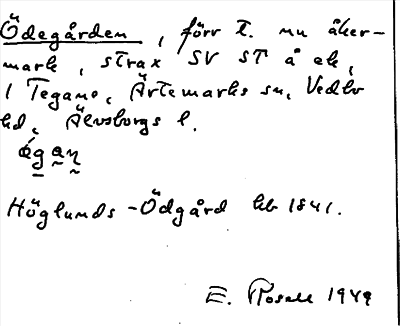 Ödegården, förr t. nu åker-
mark, strax SV ST å ek,
1 Tegano, Ärtemarks sn, Vedbo
hd, Älvsborgs l.
Höglunds-Ödgård hb 1841.
E. Rosell 1949